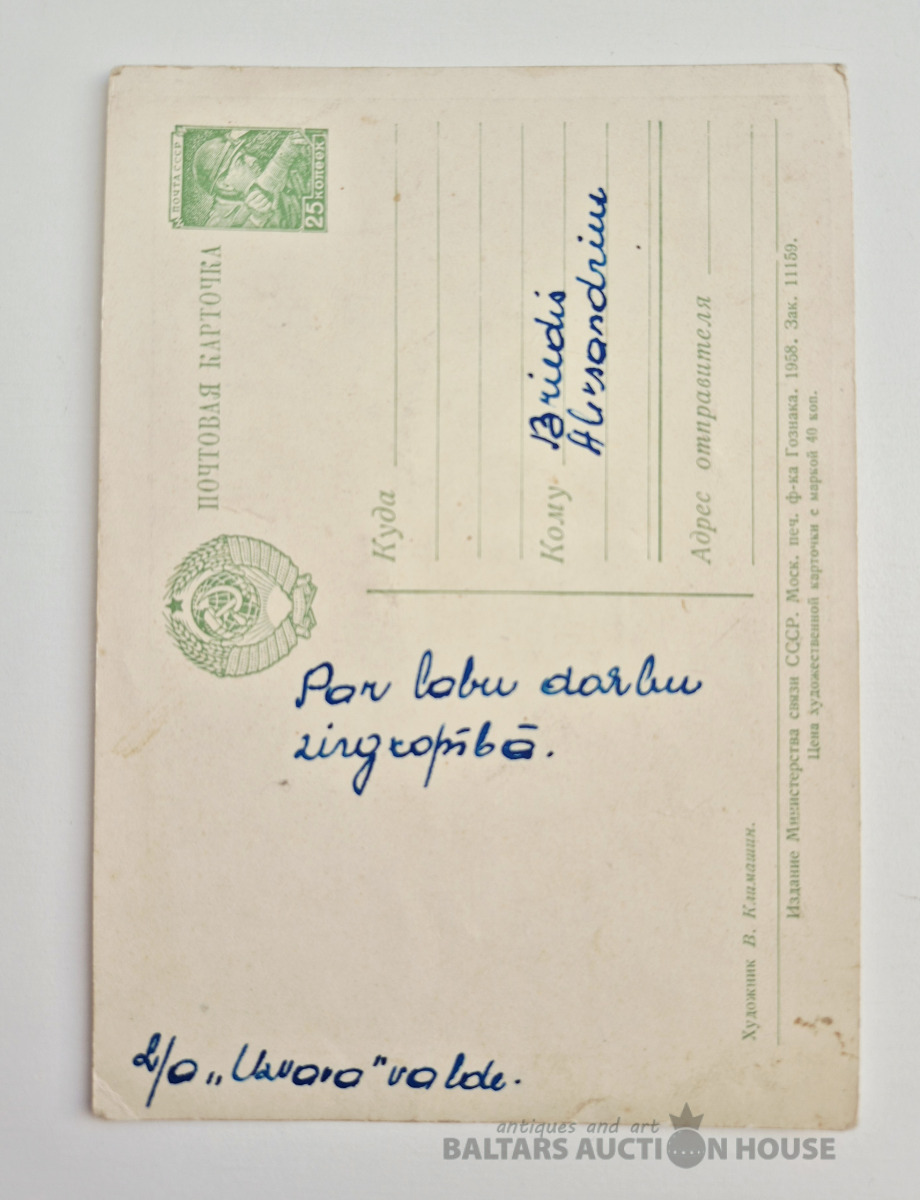 ПОЧТА СССР
25 КОПЕЕК
ПОЧТОВАЯ КАРТОЧКА
Куда
Кому Briedis
Aleksandrīns
Адрес отправителя
Par labu darbu
zirgkopībā.
L/a „Uzvara" valde.
Художник В. Климашин.
Издание Министерства связи СССР. Моск. печ. ф-ка Гознака. 1958. Зак. 11159.
Цена художественной карточки с маркой 40 коп.
antiques and art
BALTARS AUCTION HOUSE